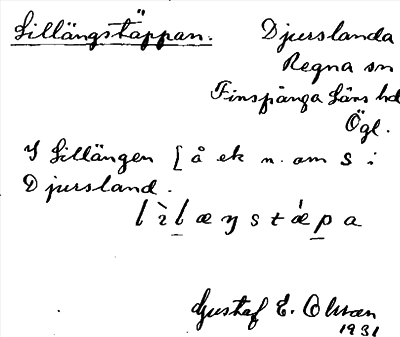 Lillängstäppan.
Djurslanda
Regna sn
Finspånga läns hd
Ögl.
I Lillängen [å ek n. om S i
Djursland.
lìlæŋstǽpa
Gustaf E. Olsson
1931